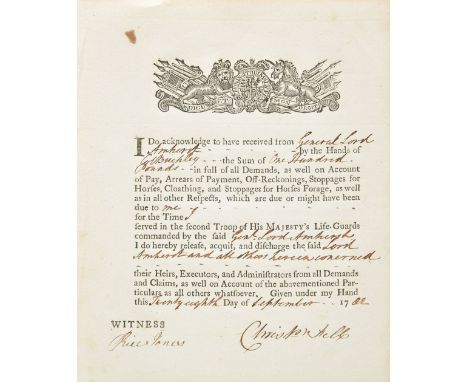 DIEU ET MON DROIT
I Do acknowledge to have received from General Lord
Amherst - - - - - - by the Hands of
- - the Sum of One Hundred
Pounds - - in full of all Demands, as well on Account
of Pay, Arrears of Payment, Off-Reckonings, Stoppages for
Horses, Cloathing, and Stoppages for Horses Forage, as well
as in all other Respects, which are due or might have been
due to me
for the Time I
served in the second Troop of His MAJESTY's Life-Guards
commanded by the said Genl. Lord Amherst
I do hereby release, acquit, and discharge the said Lord
Amherst and all others herein concerned
their Heirs, Executors, and Administrators from all Demands
and Claims, as well on Account of the abovementioned Par-
ticulars as all others whatsoever. Given under my Hand
this Twenty eighth Day of September - - 1782
WITNESS
Rice Jones